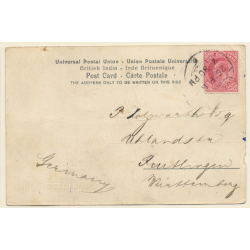 Universal Postal Union - Union Postale Universelle
British India - Inde Britannique
Post Card - Carte Postale
THE ADDRESS ONLY TO BE WRITTEN ON THIS SIDE
P. Esq
Uhlandstr
Reutlingen
Württemberg
Germany